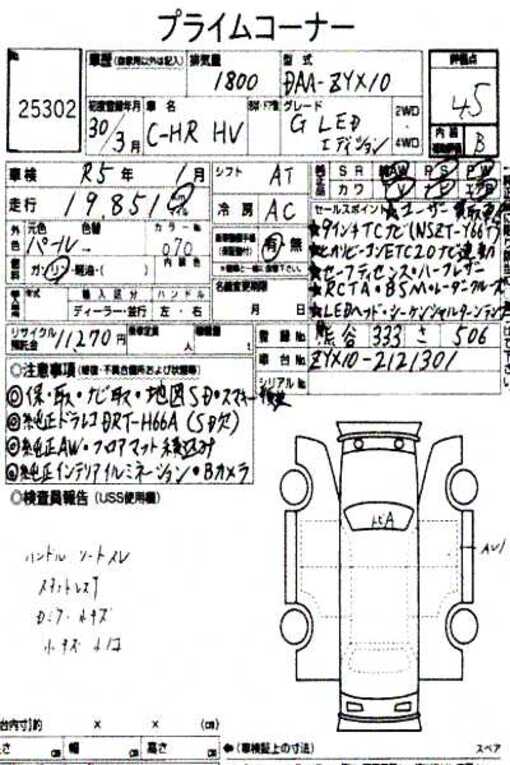 プライムコーナー
No.
25302
車歴 (自家用以外は記入) 排気量 1800 型式 DAA-ZYX10
評価点 4.5
内装 補助評価 B
初度登録年月 30年 3月 車名 C-HR HV ドア数 グレード G LED エディション 2WD・4WD
車検 R5年 1月 シフト AT
純正品 SR AW PS PW
カワ TV ナビ
走行 19,851 冷房 AC
セールスポイント ★ユーザー買取車
外色 元色 色替 パール カラーNo. 070
有・無
★9インチTCナビ(NSZT-Y66T)
★ヒカリビーコンETC2.0ナビ連動
燃料 ガソリン・軽油・( ) 内装色
★セーフティセンス・ハーフレザー
★RCTA・BSM・レーダークルーズ
★LEDヘッド・シーケンシャルターンランプ
輸入区分 ハンドル
ディーラー・並行 左・右
名義変更期限 月 日
リサイクル預託金 11,270円 乗車定員 人 積載量 t
登録No. 熊谷 333 さ 506
車台No. ZYX10-2121301
シリアルNo.
◎注意事項 (修復・不具合個所および状態等)
◎保・取・ナビ取・地図SD・スマキー積込
◎純正ドラレコ DRT-H66A (SD欠)
◎純正AW・フロアマット積込み
◎純正インテリアイルミネーション・Bカメラ
◎検査員報告 (USS使用欄)
ハンドル シート スレ
スタットレス
A
AU1
台内寸)約 × × (cm)
長さ cm 幅 cm 高さ cm
←(車検証上の寸法)
スペア